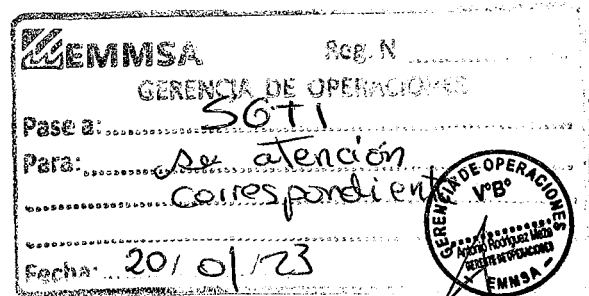 EMMSA Reg. N
GERENCIA DE OPERACIONES
Pase a: SGTI
Para: su atención
correspondiente
Fecha: 20/01/23
GERENCIA DE OPERACIONES
V°B°
Antonio Rodriguez Meza
GERENTE DE OPERACIONES
EMMSA